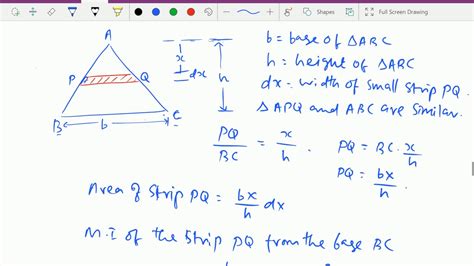 Drawing
Shapes
Full Screen Drawing
A
P
Q
B
C
b
x
dx
h
b = base of △ABC
h = height of △ABC
dx = width of small strip PQ.
△APQ and ABC are similar.
PQ/BC = x/h .
PQ = BC. x/h
PQ = bx/h .
Area of strip PQ = bx/h dx
M.I of the strip PQ from the base BC